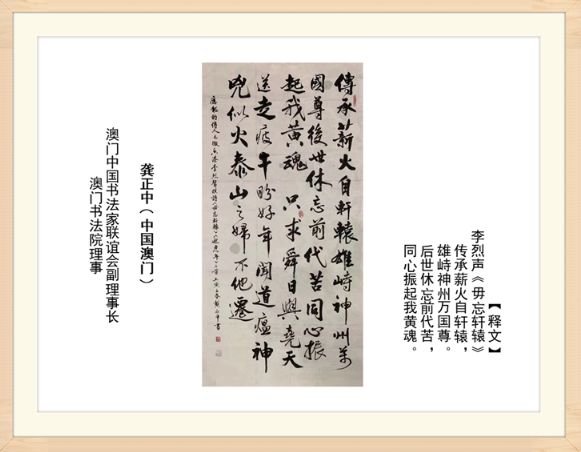 【释文】
李烈声《毋忘轩辕》
传承薪火自轩辕，
雄峙神州万国尊。
后世休忘前代苦，
同心振起我黄魂。
傳承薪火自軒轅雄峙神州萬
國尊後世休忘前代苦同心振
起我黃魂 只求舜日與堯天
送走盼好年聞道瘟神
兇似火泰山之婦不他遷
龚正中（中国澳门）
澳门中国书法家联谊会副理事长
澳门书法院理事